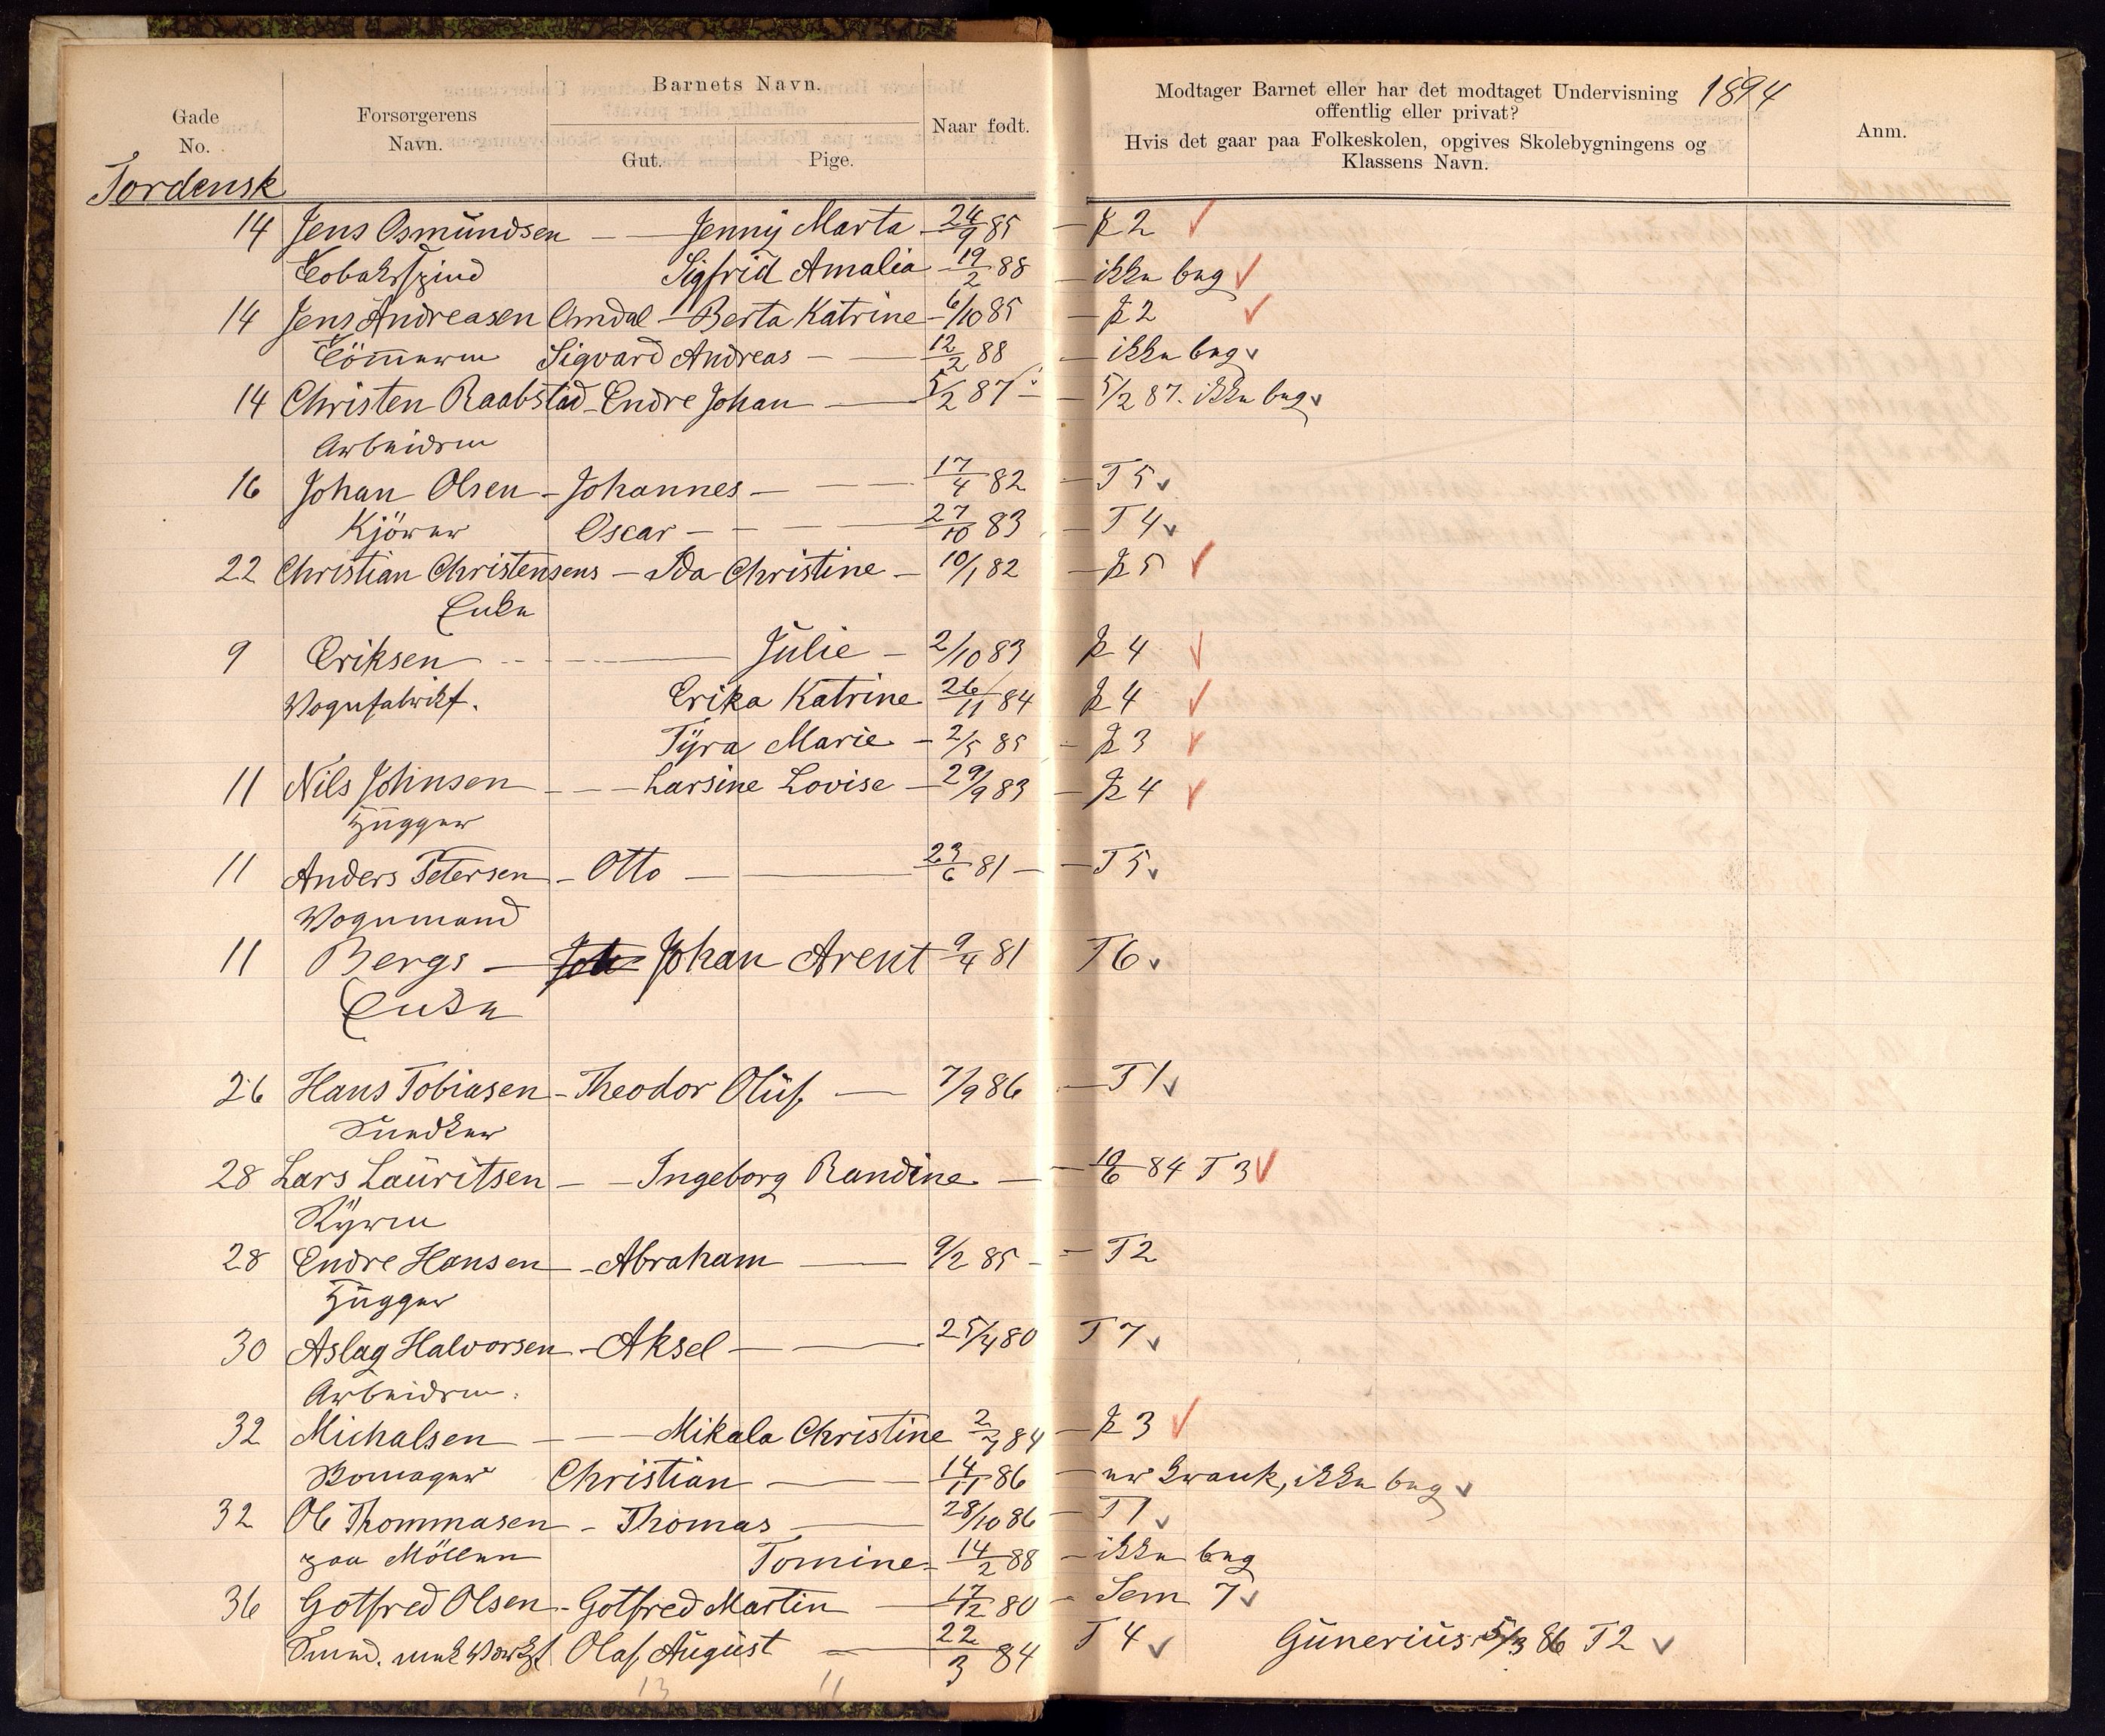 Barnets Navn.
Gade No.
Forsørgerens Navn.
Gut.
Pige.
Naar født.
Modtager Barnet eller har det modtaget Undervisning offentlig eller privat?
Hvis det gaar paa Folkeskolen, opgives Skolebygningens og Klassens Navn.
1894
Anm.
Tordensk
14 Jens Osmundsen — Jenny Marta — 24/9 85 — K 2 ✓
Tobaksspind Sigfrid Amalia — 19/2 88 — ikke beg ✓
14 Jens Andreasen Omdal — Berta Katrine — 6/10 85 — K 2 ✓
Tömmerm Sigvard Andreas — 12/2 88 — ikke beg ✓
14 Christen Raabstad — Endre Johan — 5/2 87 — 5/2 87. ikke beg ✓
Arbeiderm
16 Johan Olsen — Johannes — 17/4 82 — T 5 ✓
Kjörer Oscar — 27/10 83 — T 4 ✓
22 Christian Christensens — Ida Christine — 10/1 82 — K 5 ✓
Enke
9 Eriksen — Julie — 2/10 83 K 4 ✓
Vognfabrikf. Erika Katrine 26/11 84 K 4 ✓
Tyra Marie — 2/5 85 — K 3 ✓
11 Nils Johnsen — Larsine Lovise — 29/9 83 — K 4 ✓
Hugger
11 Anders Petersen — Otto — 23/6 81 — T 5 ✓
Vognmand
11 Bergs — Joh Johan Arent 9/4 81 T 6 ✓
Enke
26 Hans Tobiasen — Theodor Oluf — 7/9 86 — T 1 ✓
Snedker
28 Lars Lauritsen — Ingeborg Randine — 10/6 84 T 3 ✓
Styrm
28 Endre Hansen — Abraham — 9/2 85 — T 2
Hugger
30 Aslag Halvorsen — Aksel — 25/4 80 T 7 ✓
Arbeiderm.
32 Michalsen — Mikala Christine 2/7 84 — K 3 ✓
Bomager Christian — 14/11 86 — er krank, ikke beg ✓
32 Ol Thommasen — Thomas — 28/10 86 — T 1 ✓
paa Möllen Tomine — 14/2 88 — ikke beg
36 Gotfred Olsen — Gotfred Martin — 17/12 80 — Sem 7 ✓
Smed. Olaf August — 22/3 84 T 4 ✓ Gunerius 5/3 86 T 2 ✓
13 11